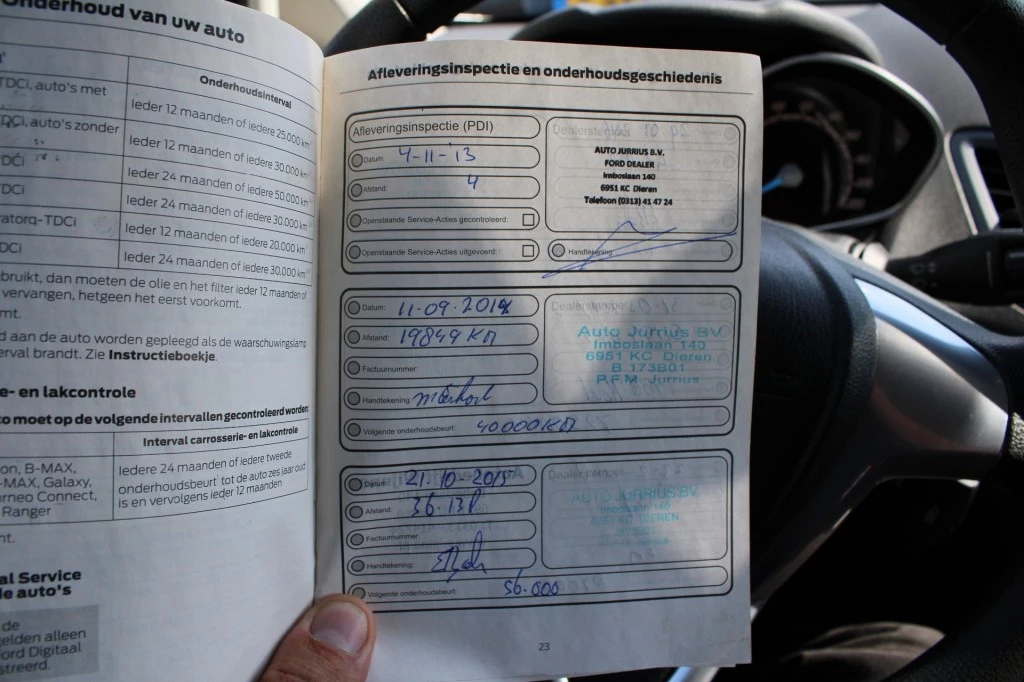 Onderhoud van uw auto
Onderhoudsinterval
TDCi, auto's met
Ieder 12 maanden of iedere 25.000 km
TDCi, auto's zonder
Ieder 12 maanden of iedere 30.000 km
TDCi
Ieder 24 maanden of iedere 50.000 km
TDCi
Ieder 24 maanden of iedere 30.000 km
ratorq-TDCi
Ieder 12 maanden of iedere 20.000 km
DCi
Ieder 24 maanden of iedere 30.000 km
bruikt, dan moeten de olie en het filter ieder 12 maanden of
vervangen, hetgeen het eerst voorkomt.
mt.
d aan de auto worden gepleegd als de waarschuwingslamp
erval brandt. Zie Instructieboekje.
e- en lakcontrole
to moet op de volgende intervallen gecontroleerd worden:
Interval carrosserie- en lakcontrole
on, B-MAX,
-MAX, Galaxy,
urneo Connect,
Ranger
Iedere 24 maanden of iedere tweede
onderhoudsbeurt tot de auto zes jaar oud
is en vervolgens ieder 12 maanden
nt.
al Service
de auto's
de
gelden alleen
ord Digitaal
streerd.
Afleveringsinspectie en onderhoudsgeschiedenis
Afleveringsinspectie (PDI)
Datum: 4-11-'13
Afstand: 4
Openstaande Service-Acties gecontroleerd:
Openstaande Service-Acties uitgevoerd:
Dealerstempel
AUTO JURRIUS B.V.
FORD DEALER
Imboslaan 140
6951 KC Dieren
Telefoon (0313) 41 47 24
Handtekening:
Datum: 11-09-2014
Afstand: 19849 KM
Factuurnummer:
Handtekening:
Volgende onderhoudsbeurt: 40000 KM
Dealerstempel
Auto Jurrius BV
Imboslaan 140
6951 KC Dieren
B 173B01
P.F.M. Jurrius
Datum: 21-10-2015
Afstand:
Factuurnummer:
Handtekening:
Volgende onderhoudsbeurt: 56.000
Dealerstempel
AUTO JURRIUS BV
Imboslaan 140
6951 KC DIEREN
23